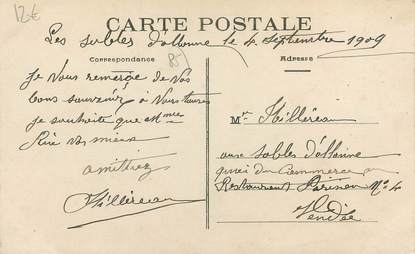 12€
CARTE POSTALE
Les sables d'ollonne le 4 septembre 1909
85
Correspondance
Adresse
Je vous remerge de vos
bons souvenir à vous toutes
je souhaite que Mme
soit mieux
amitiez
Hillereau
Mr Hillereau
aux sables d'ollonne
quai du Commerce
Restaurent No 4
Vendée